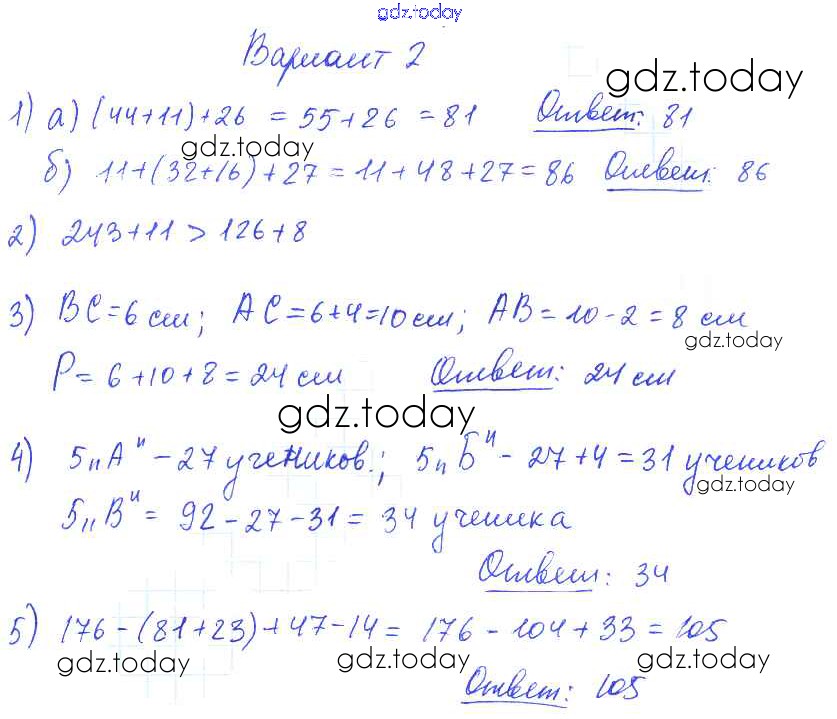 gdz.today
Вариант 2
gdz.today
1) а) (44+11)+26 = 55+26 = 81 Ответ: 81
gdz.today
б) 11+(32+16)+27 = 11+48+27 = 86 Ответ: 86
2) 243+11 > 126+8
3) BC = 6 см; AC = 6+4 = 10 см; AB = 10-2 = 8 см
gdz.today
P = 6+10+8 = 24 см Ответ: 24 см
gdz.today
4) 5„А" - 27 учеников.; 5„Б" - 27+4 = 31 учеников
gdz.today
5„В" = 92-27-31 = 34 ученика
Ответ: 34
5) 176-(81+23)+47-14 = 176-104+33 = 105
gdz.today gdz.today gdz.today
Ответ: 105